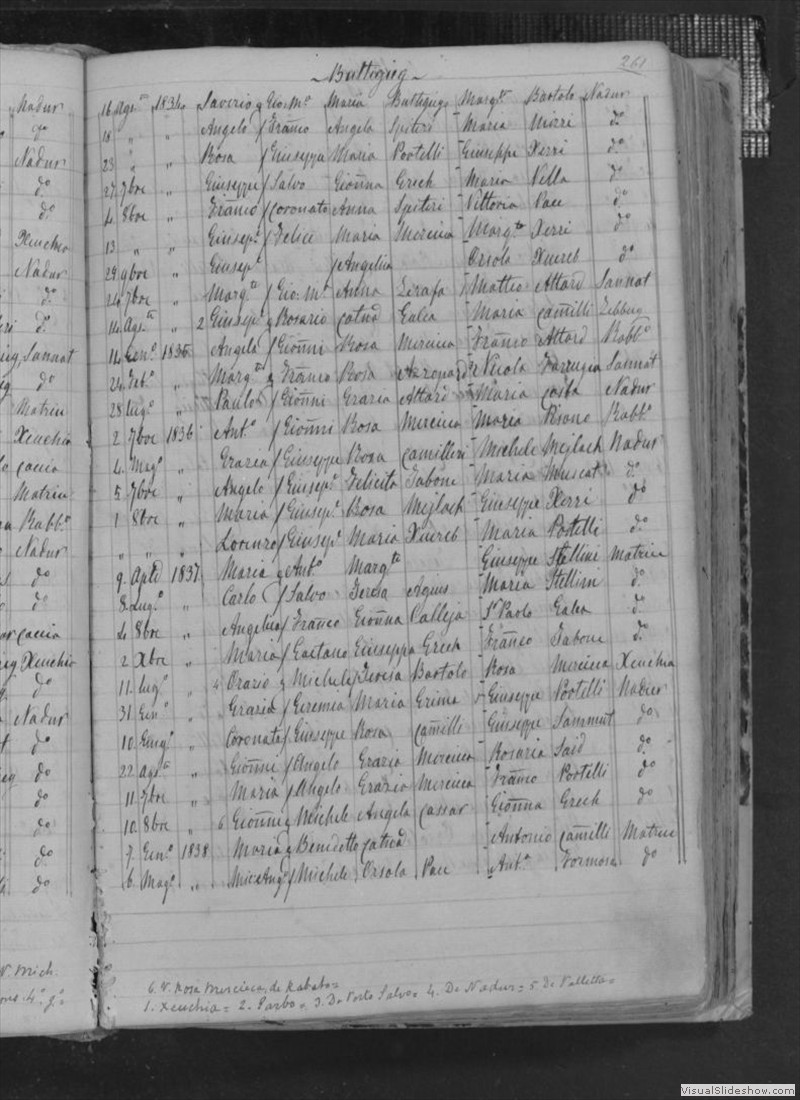 261
Buttigieg
16 Ags.to 1834 Saverio Gio. Ma. Maria Buttigieg Margta. Bartolo Nadur
18 " " Angelo Franco Angela Spiteri Maria Mizzi do
23 " " Rosa Giuseppe Maria Portelli Giuseppe Xerri do
27 7bre " Giuseppe Salvo Gionna Grech Maria Vella do
4 8bre " Franco Coronato Anna Spiteri Vittoria Pace do
13 " " Giusepe. Felice Maria Mercieca Margta. Xerri do
29 9bre " Giusepe. Angelia Orsola Xuereb do
24 7bre " Margta. Gio. Ma. Anna Zerafa Matteo Attard Sannat
14 Ags.to " 2 Giusepe. Rosario Catna Galea Maria Camilli Zebbug
14 Genо. 1835 Angelo Gionni Rosa Mercieca Franco Attard Rabbo.
24 Febo. " Margta. Franco Rosa Azzopardi Nicola Farrugia Sannat
28 Lugo. " Paulo Gionni Grazia Attard Maria Costa Nadur
2 7bre 1836 Anto. Gionni Rosa Mercieca Maria Pisano Rabbo.
4 Mago. " Grazia Giuseppe Rosa Camilleri Michele Mejlach Nadur
5 7bre " Angelo Giusepe. Felicita Tabone Maria Muscat do
1 8bre " Maria Giusepe. Rosa Mejlach Giuseppe Xerri do
" " " Lorenzo Giusepe. Maria Xuereb Maria Portelli do
9 Aple 1837 Maria Anto. Margta. Giuseppe Stellini Matrice
8 Lugo. " Carlo Salvo Teresa Agius Maria Stellini do
4 8bre " Angelica Franco Gionna Calleja Sr. Paolo Galea do
2 Xbre " Maria Gaetano Giuseppa Grech Franco Tabone do
11 Lugo. " 4 Orazio Michele Teresa Bartolo Rosa Mercieca Xeuchia
31 Geno. " Grazia Geremia Maria Grima Giuseppe Portelli Nadur
10 Giugo. " Coronata Giuseppe Rosa Camilli Giuseppe Sammut do
22 Ags.to " Gionni Angelo Grazia Mercieca Rosaria Said do
11 7bre " Maria Angelo Grazia Mercieca Franco Portelli do
10 8bre " 6 Gionni Michele Angela Cassar Gionna Grech do
7 Geno. 1838 Maria Benedetto Catna Antonio Camilli Matrice
6 Mago. " Mic. Ango. Michele Orsola Pace Anta. Formosa do
6. V. Rosa Mercieca, de Rabato =
1. Xeuchia = 2. Garbo = 3. De Porto Salvo = 4. De Nadur = 5. De Valletta =
VisualSlideshow.com